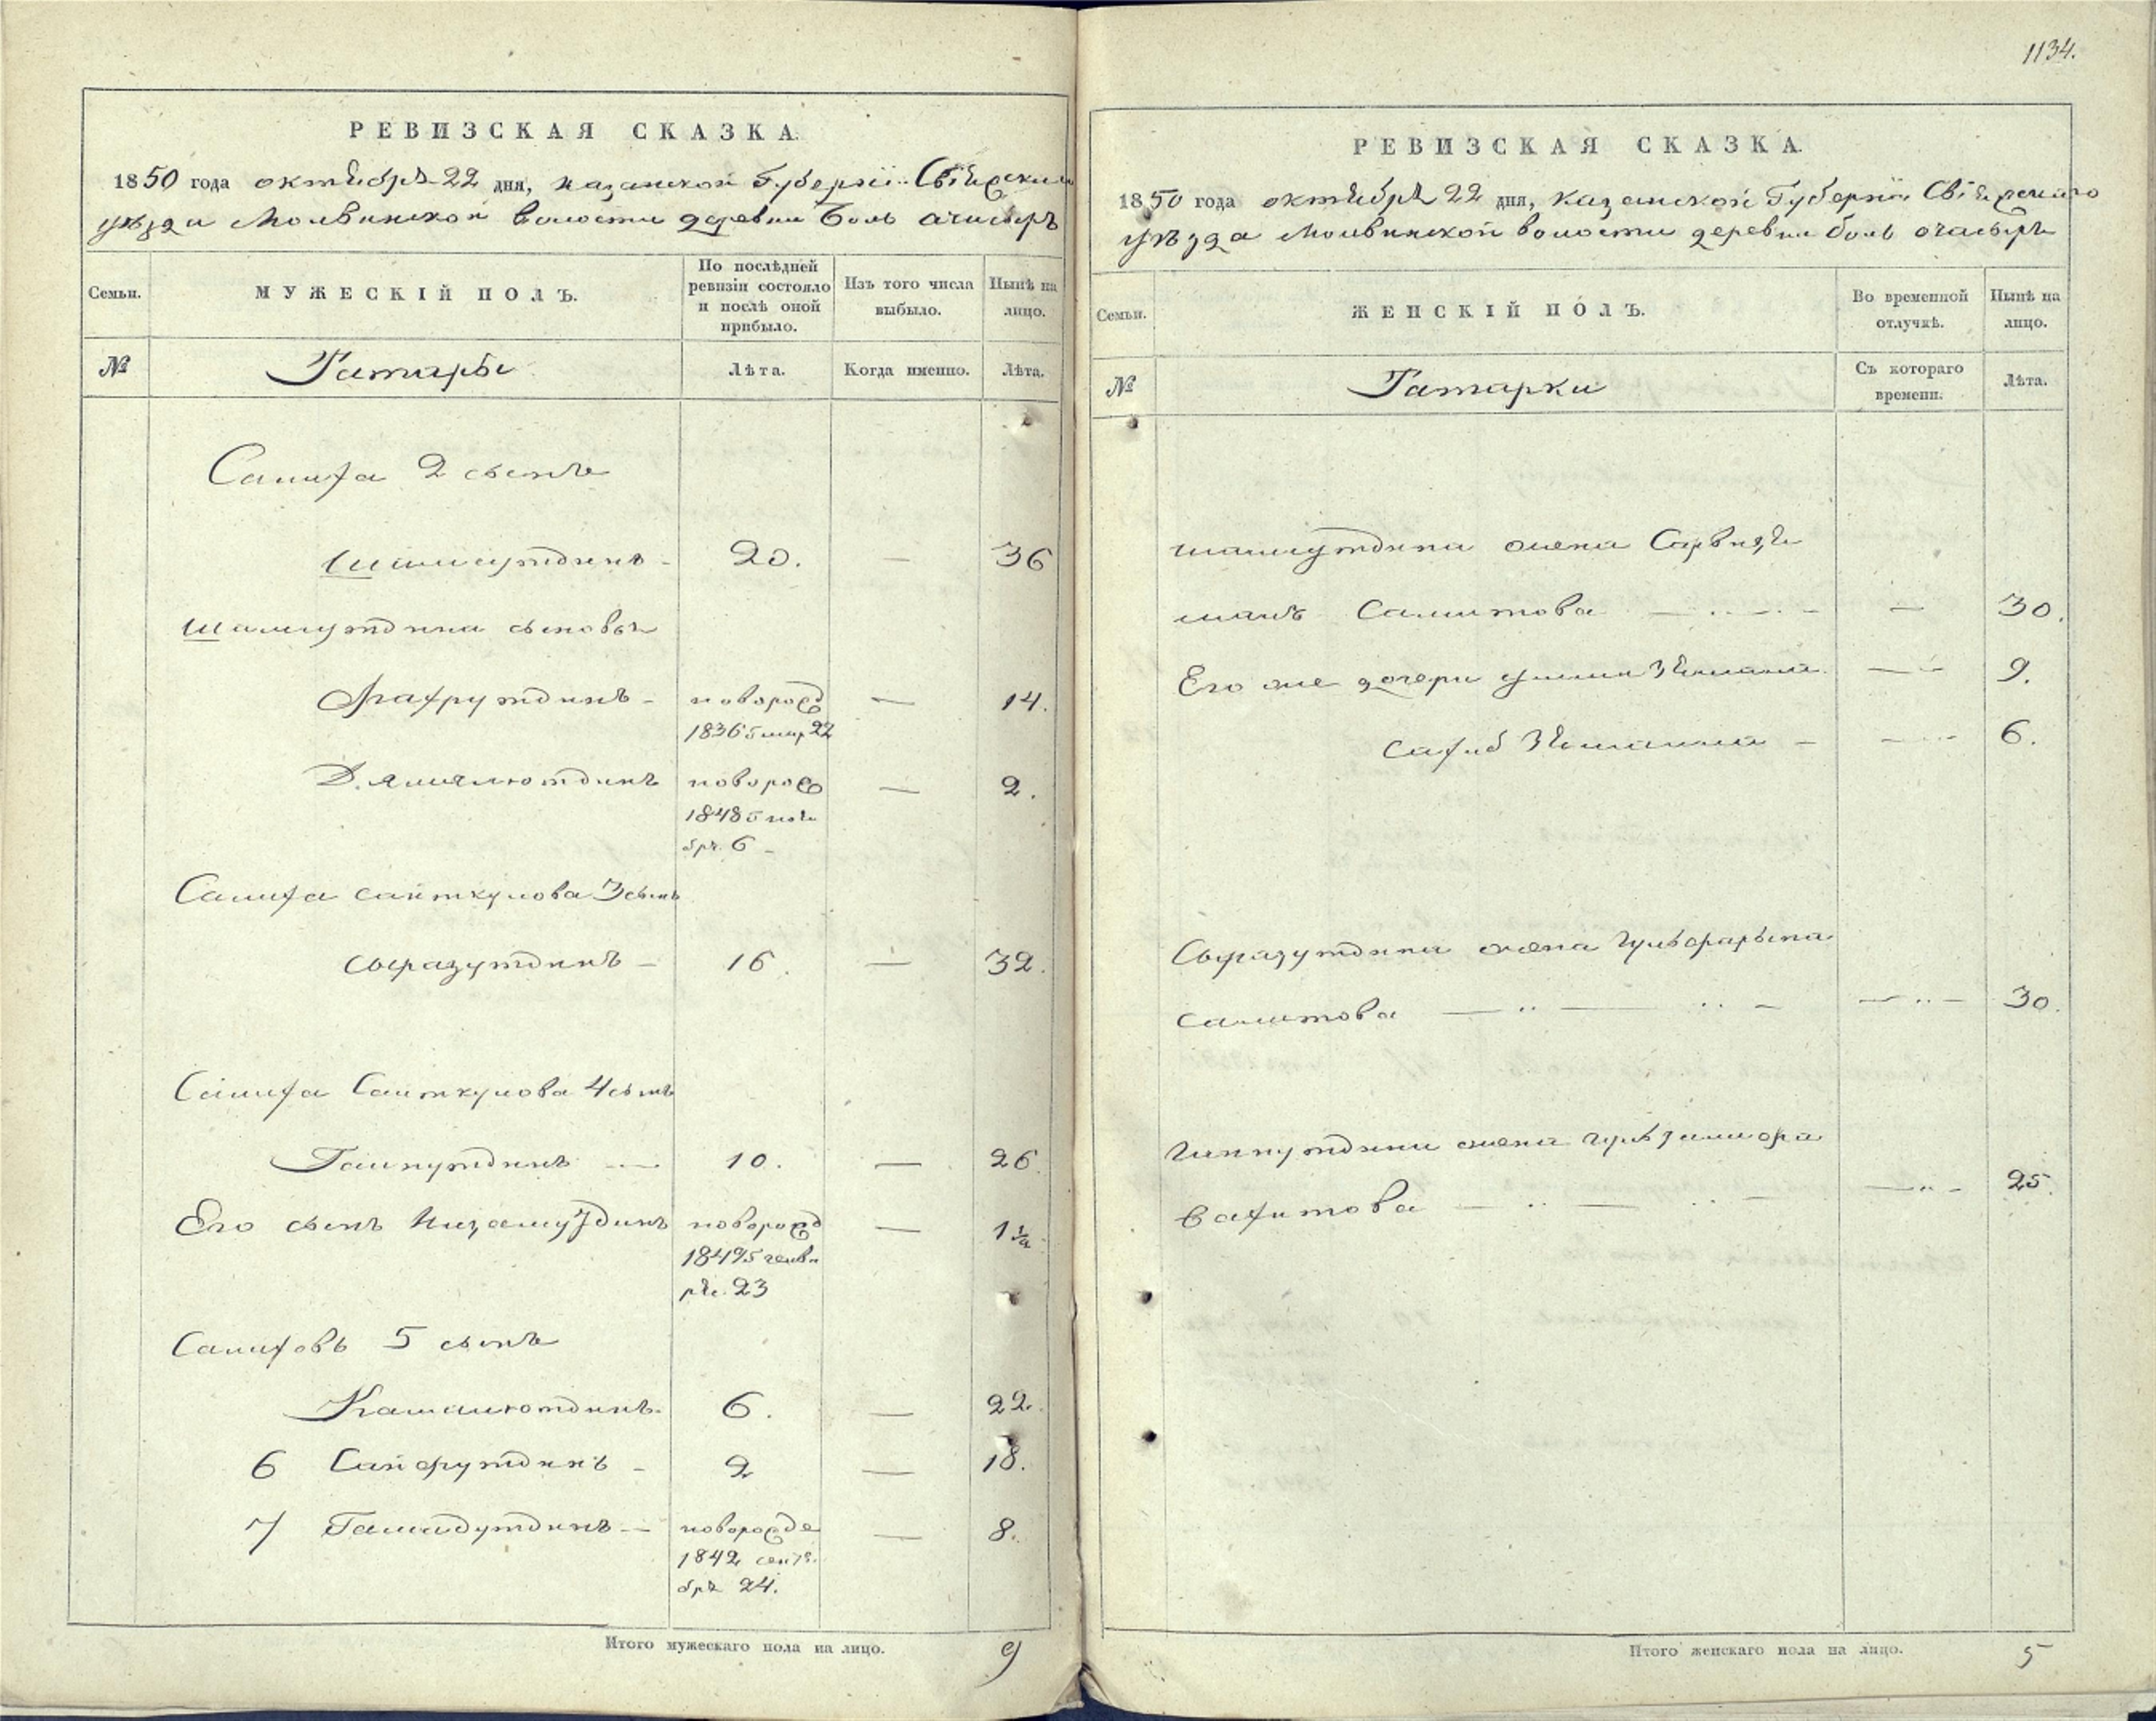 РЕВИЗСКАЯ СКАЗКА.
1850 года октября 22 дня, казанской Губерніи Свіяжскаго
уѣзда Молвинской волости деревни Боль ачасырь
Семьи.
МУЖЕСКІЙ ПОЛЪ.
По послѣдней ревизіи состояло и послѣ оной прибыло.
Изъ того числа выбыло.
Нынѣ на лицо.
№
Татары
Лѣта.
Когда именно.
Лѣта.
Салиха 2 сынъ
Шамсутдинъ - 20. — 36
Шамсутдина сыновья
Фахрутдинъ -новорожд — 14.
1836 мар 22
Джамалютдинъ новорож — 2.
1848 ноя
бря 6 -
Салиха саиткулова 3 сынъ
Сыразутдинъ - 16. — 32.
Салиха Саиткулова 4 сынъ
Гайнутдинъ — 10. — 26.
Его сынъ Низамутдинъ новорожд — 1½
1849 генва
ря 23
Салиховъ 5 сынъ
Камалютдинъ. 6. — 22.
6 Сайфутдинъ - 2 — 18.
7 Гамидутдинъ — новорожде — 8.
1842 сентя
бря 24.
Итого мужескаго пола на лицо. 9
1134.
РЕВИЗСКАЯ СКАЗКА.
1850 года октября 22 дня, казанской Губерніи Свіяжскаго
уѣзда Молвинской волости деревни боль ачасырь
Семьи.
ЖЕНСКІЙ ПОЛЪ.
Во временной отлучкѣ.
Нынѣ на лицо.
№
Татарки
Съ котораго времени.
Лѣта.
шамсутдина жена
Салитова — 30.
Его же дочери — 9.
6.
Сыразутдина жена
салитова — 30.
гайнутдина жена
вахитова — 25.
Итого женскаго пола на лицо. 5